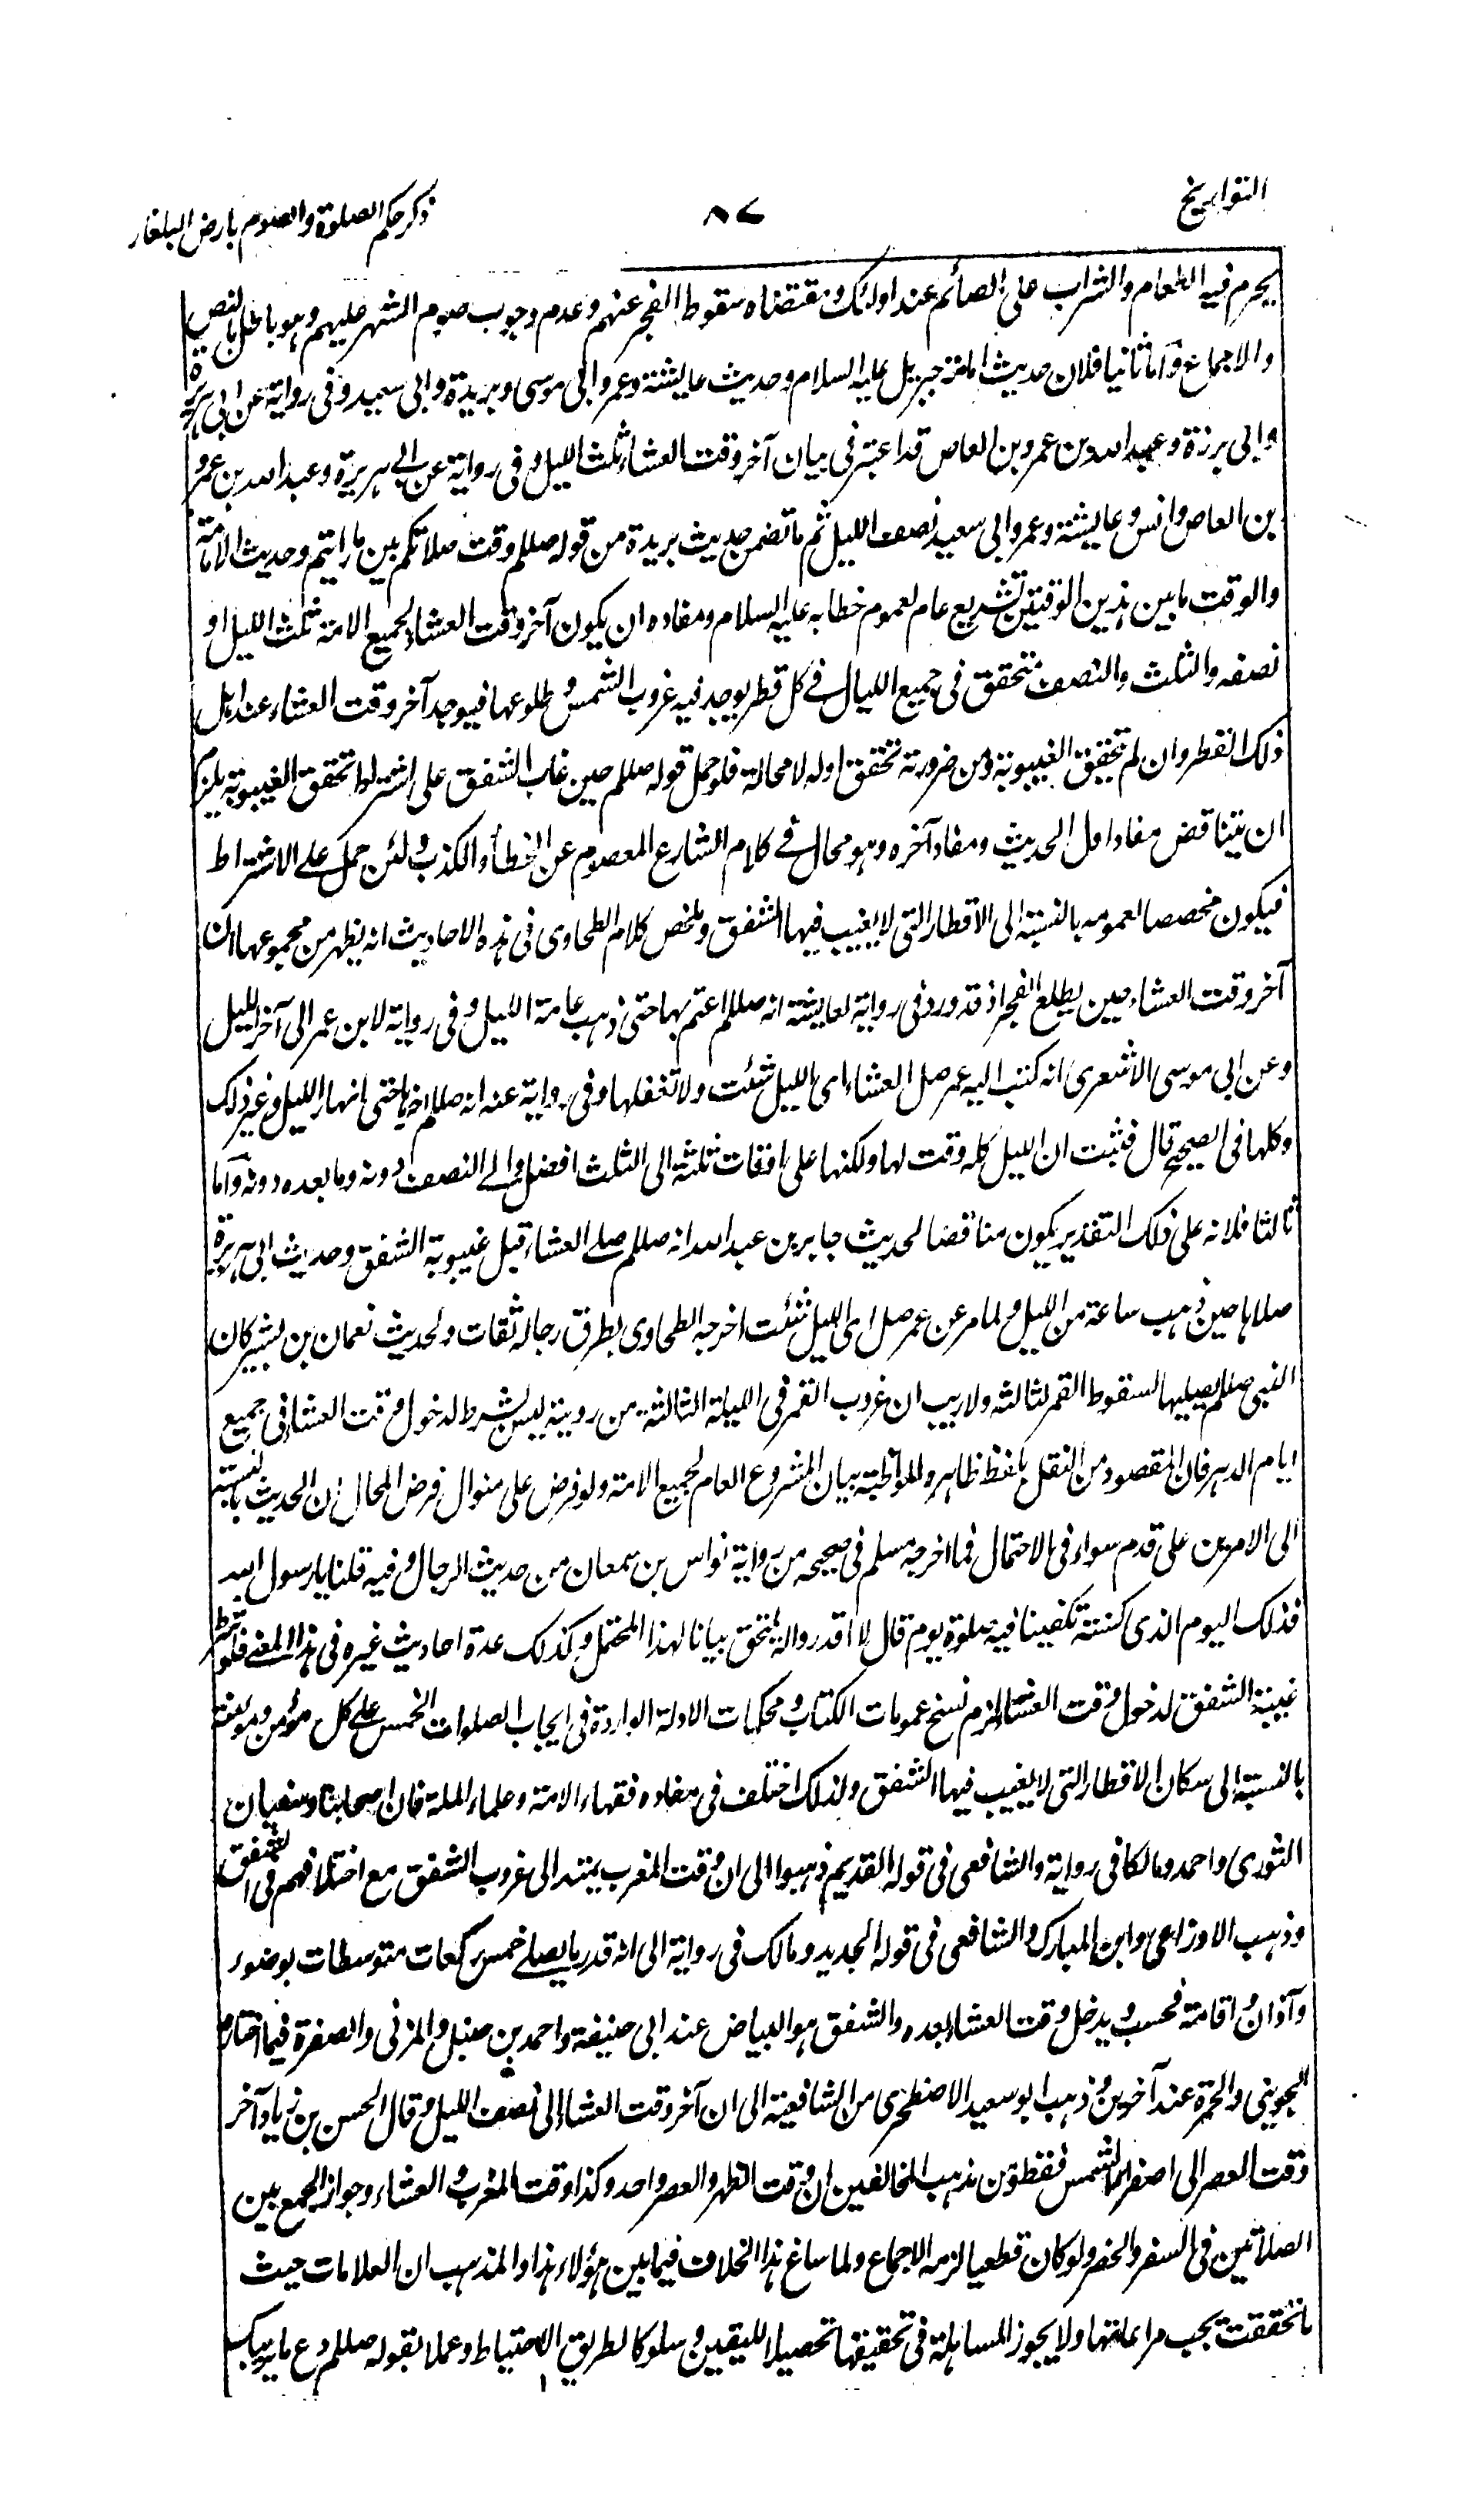 التواريخ
٨٧
ذكر حكم الصلوة والصوم بارض البلغار
يحرم فيه الطعام والشراب على الصائم عند اولئك ومقتضاه سقوط الفجر عنهم وعدم وجوب صوم الشهر عليهم وهو باطل بالنص
والاجماع وأما ثانيا فلان حديث امامة جبريل عليه السلام وحديث عايشة وعمر وابى موسى وبريدة وابى سعيد وفى رواية عن ابى هريرة
وابى برزة وعبد الله بن عمرو بن العاص قد اعتبر فى بيان آخر وقت العشاء ثلث الليل وفى رواية عن ابى هريرة وعبد الله بن عمرو
بن العاص وانس وعايشة وعمر وابى سعيد نصف الليل ثم ما تضمن حديث بريدة من قوله صللم وقت صلاتكم بين ما رايتم وحديث الامامة
والوقت ما بين هذين الوقتين تشريع عام لعموم خطابه عليه السلام ومفاده ان يكون آخر وقت العشاء لجميع الامة ثلث الليل او
نصفه والثلث والنصف متحقق فى جميع الليال فى كل قطر يوجد فيه غروب الشمس وطلوعها فيوجد آخر وقت العشاء عند اهل
ذلك القطر وان لم تحقيق الغيبوبة ومن ضرورته تحقق اوله لا محالة فلو حمل قوله صللم حين غاب الشفق على اشتراط تحقق الغيبوبة يلزم
ان يتناقض مفاد اول الحديث ومفاد آخره وهو محال فى كلام الشارع المعصوم عن الخطأ والكذب ولئن حمل على الاشتراط
فيكون مخصصا لعمومه بالنسبة الى الاقطار التى لا يغيب فيها الشفق وملخص كلام الطحاوى فى هذه الاحاديث انه يظهر من مجموعها ان
آخر وقت العشاء حين يطلع الفجر اذ قد ورد فى رواية لعايشة انه صللم اعتم بها حتى ذهب عامة الليل وفى رواية لابن عمر الى آخر الليل
وعن ابى موسى الاشعرى انه كتب اليه عمر صل العشاء اى الليل شئت ولا تغفلها وفى رواية عنه انه صللم اخرها حتى انهار الليل وغير ذلك
وكلها فى الصحيح قال فثبت ان الليل كله وقت لها ولكنها على اوقات ثلثة الى الثلث افضل والى النصف دونه وما بعده دونه وأما
ثالثا فلانه على ذلك التقدير يكون مناقضا لحديث جابر بن عبد الله انه صللم صلى العشاء قبل غيبوبة الشفق وحديث ابى هريرة
صلاها حين ذهب ساعة من الليل ولما مر عن عمر صل اى الليل شئت اخرجه الطحاوى بطرق رجاله ثقات ولحديث نعمان بن بشير كان
النبى صللم يصليها لسقوط القمر لثالثه ولا ريب ان غروب القمر فى الليلة الثالثة من رويته ليس بشرط لدخول وقت العشاء فى جميع
ايام الدهر فان المقصود من النقل بلفظ ظاهره المواظبة بيان المشروع العام لجميع الامة ولو فرض على منوال فرض المحال ان الحديث بالنسبة
الى الامرين على قدم سواء فى الاحتمال فما اخرجه مسلم فى صحيحه من رواية نواس بن سمعان من حديث الدجال وفيه قلنا يا رسول الله
فذلك اليوم الذى كسنة تكفينا فيه صلوة يوم قال لا اقدروا له يلتحق بيانا لهذا المحتمل وكذلك عدة احاديث غيره فى هذا المعنى فلو شرط
غيبة الشفق لدخول وقت العشاء لزم نسخ عمومات الكتاب ومحكمات الادلة الواردة فى ايجاب الصلوات الخمس على كل مؤمن ومؤمنة
بالنسبة الى سكان الاقطار التى لا يغيب فيها الشفق ولذلك اختلف فى مفاده فقهاء الامة وعلماء الملة فان اصحابنا وسفيان
الثورى واحمد ومالكا فى رواية والشافعى فى قوله القديم ذهبوا الى ان وقت المغرب يمتد الى غروب الشفق مع اختلافهم فى الشفق
وذهب الاوزاعى وابن المبارك والشافعى فى قوله الجديد ومالك فى رواية الى انه قدر ما يصلى خمس ركعات متوسطات بوضوء
وآذان واقامة فحسب ويدخل وقت العشاء بعده والشفق هو البياض عند ابى حنيفة واحمد بن حنبل والمزنى والصفرة فيما اختاره
الجوينى والحمرة عند آخرين وذهب ابو سعيد الاصطخرى من الشافعية الى ان آخر وقت العشاء الى نصف الليل وقال الحسن بن زياد آخر
وقت العصر الى اصفرار الشمس فقط ومن مذهب المخالفين ان وقت الظهر والعصر واحد وكذا وقت المغرب والعشاء وجواز الجمع بين
الصلاتين فى السفر والحضر ولو كان قطعيا لزمه الاجماع ولما ساغ هذا الخلاف فيما بين هؤلاء هذا والمذهب ان العلامات حيث
ما تحققت يجب مراعاتها ولا يجوز المساهلة فى تحقيقها تحصيلا لليقين وسلوكا لطريق الاحتياط وعملا بقوله صللم دع ما يريبك